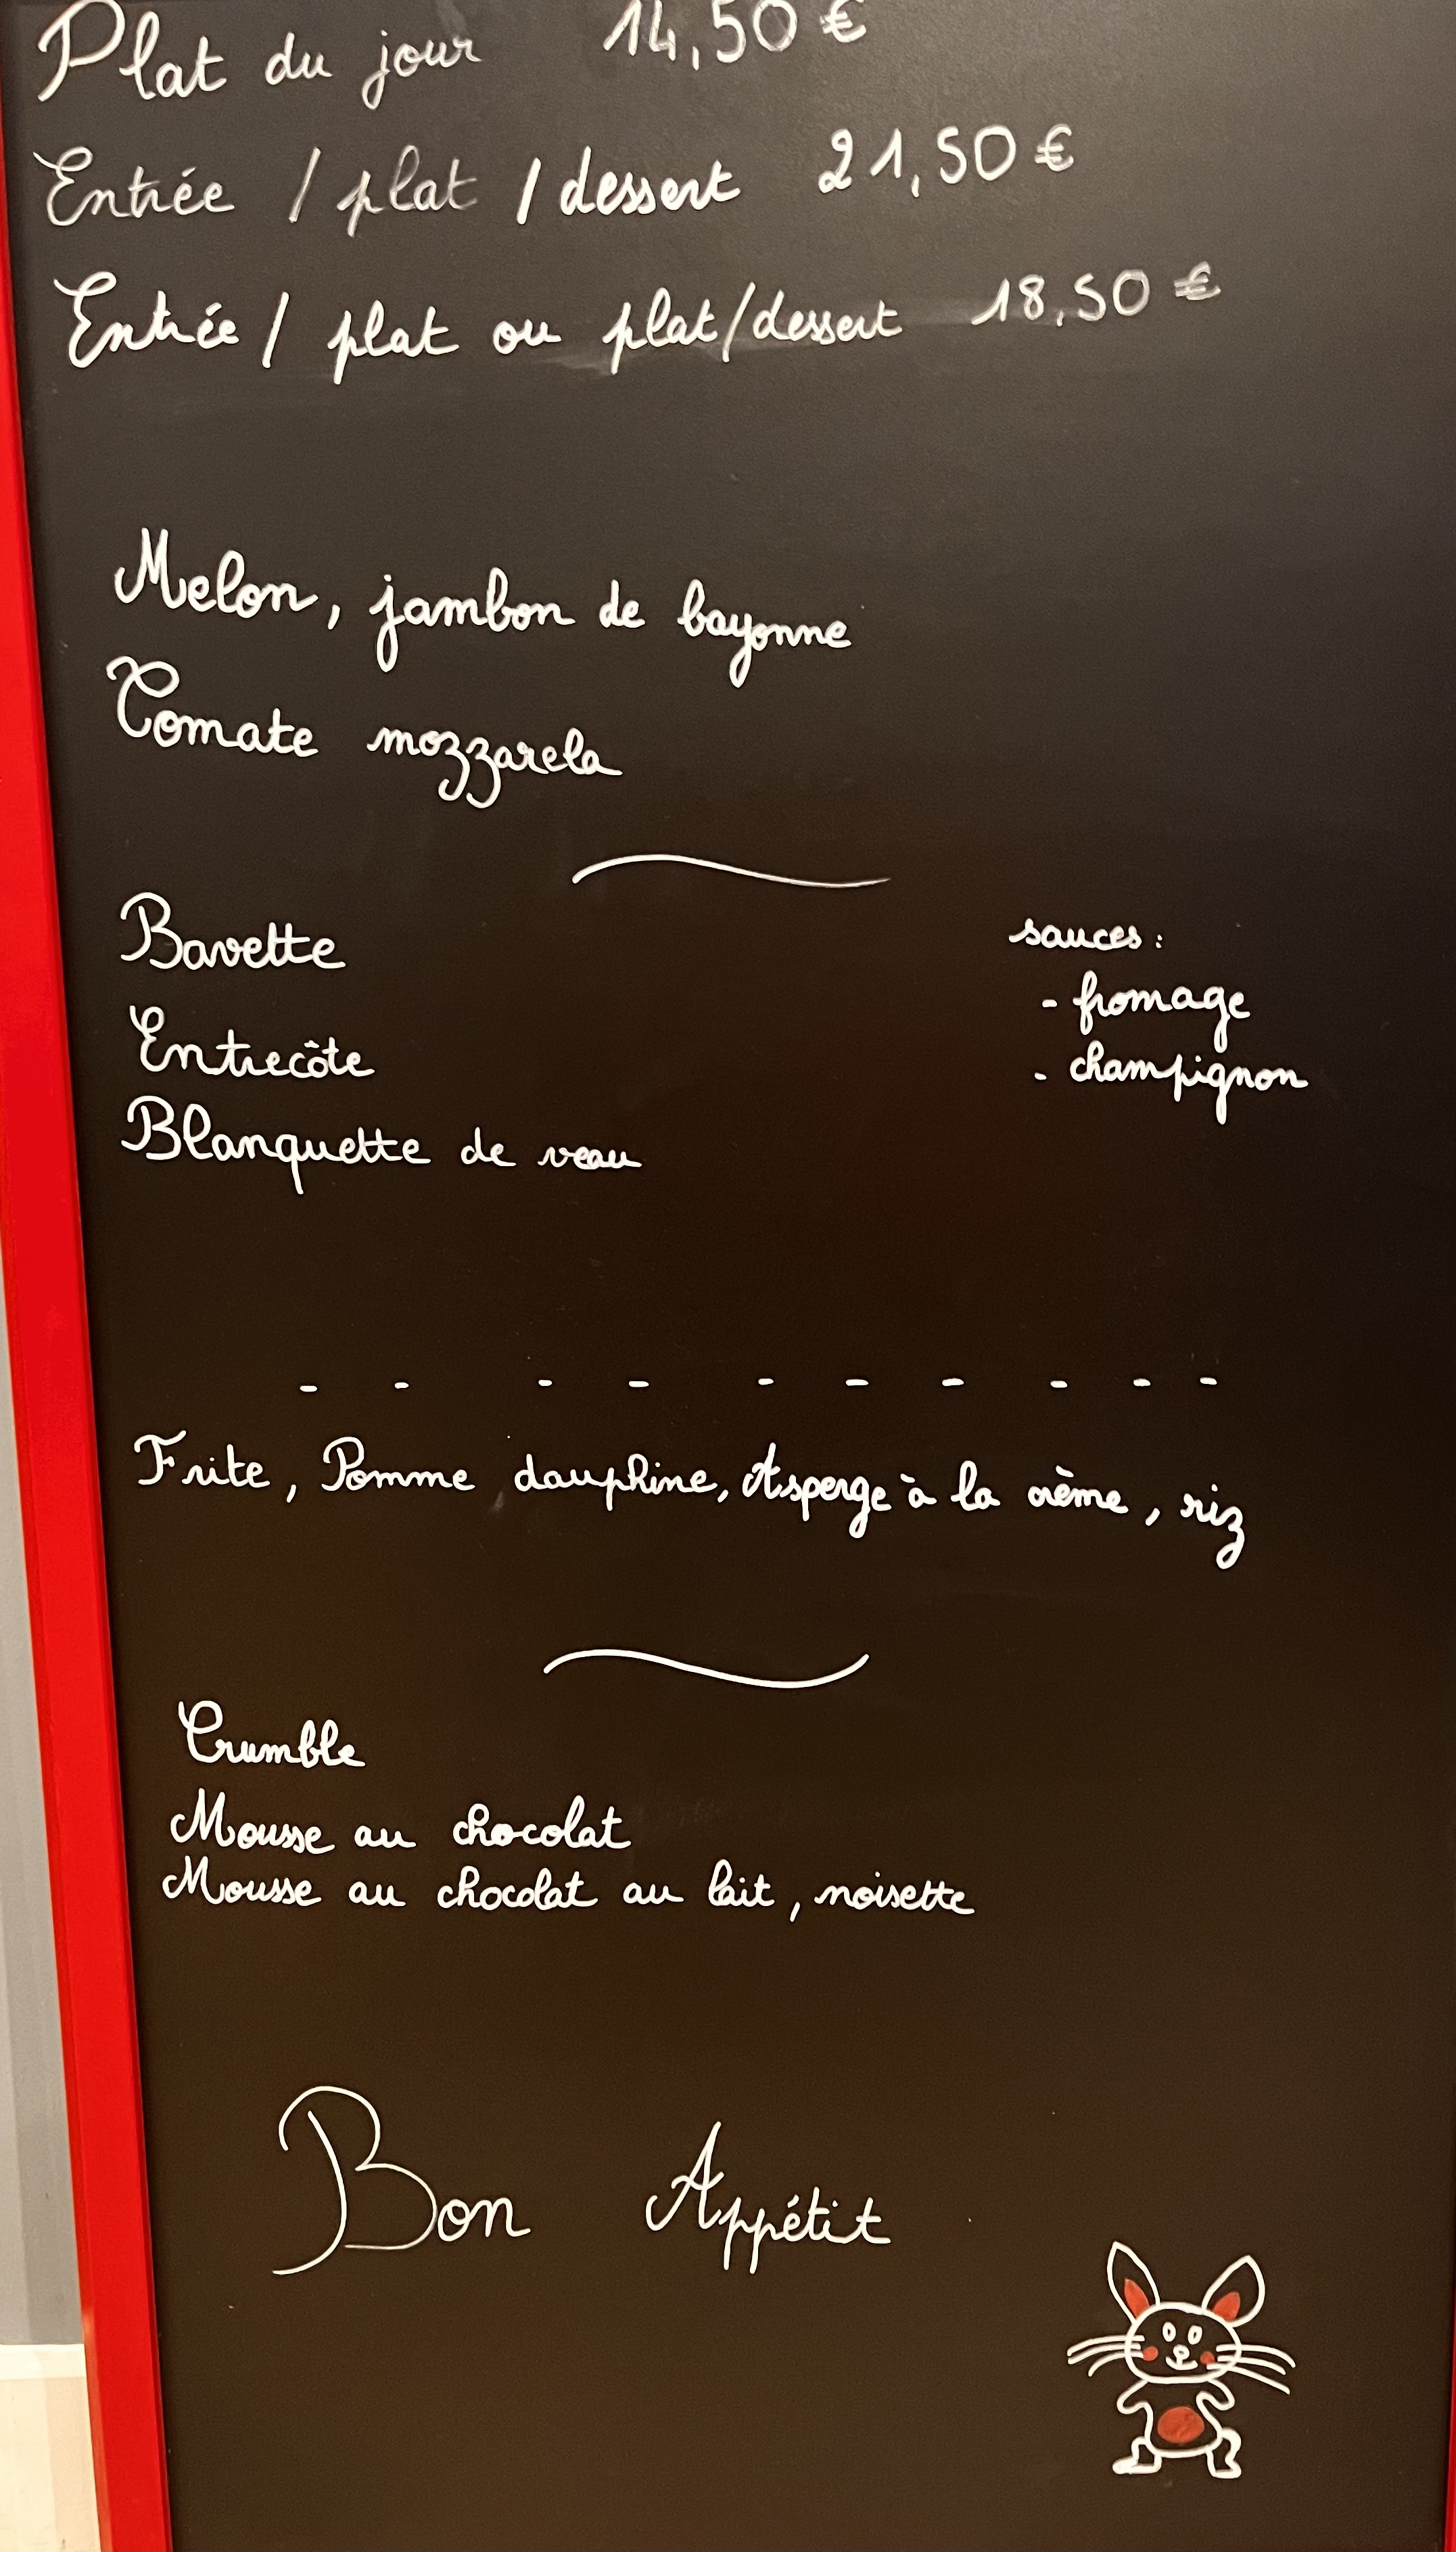 Plat du jour 14,50 €
Entrée / plat / dessert 21,50 €
Entrée / plat ou plat/dessert 18,50 €
Melon, jambon de bayonne
Tomate mozzarela
Bavette
Entrecôte
Blanquette de veau
sauces :
- fromage
- champignon
Frite, Pomme dauphine, Asperge à la crème, riz
Crumble
Mousse au chocolat
Mousse au chocolat au lait, noisette
Bon Appétit